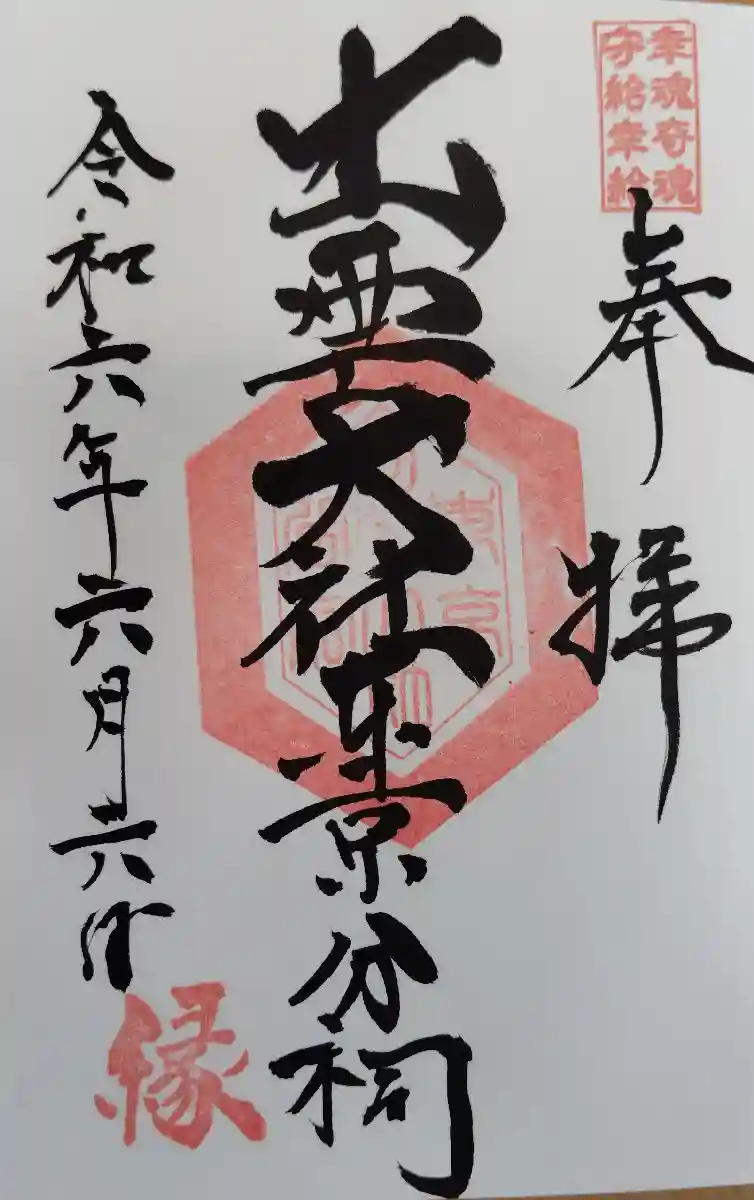 幸魂奇魂
守給幸給
奉拝
出雲大社東京分祠
令和六年六月六日
縁